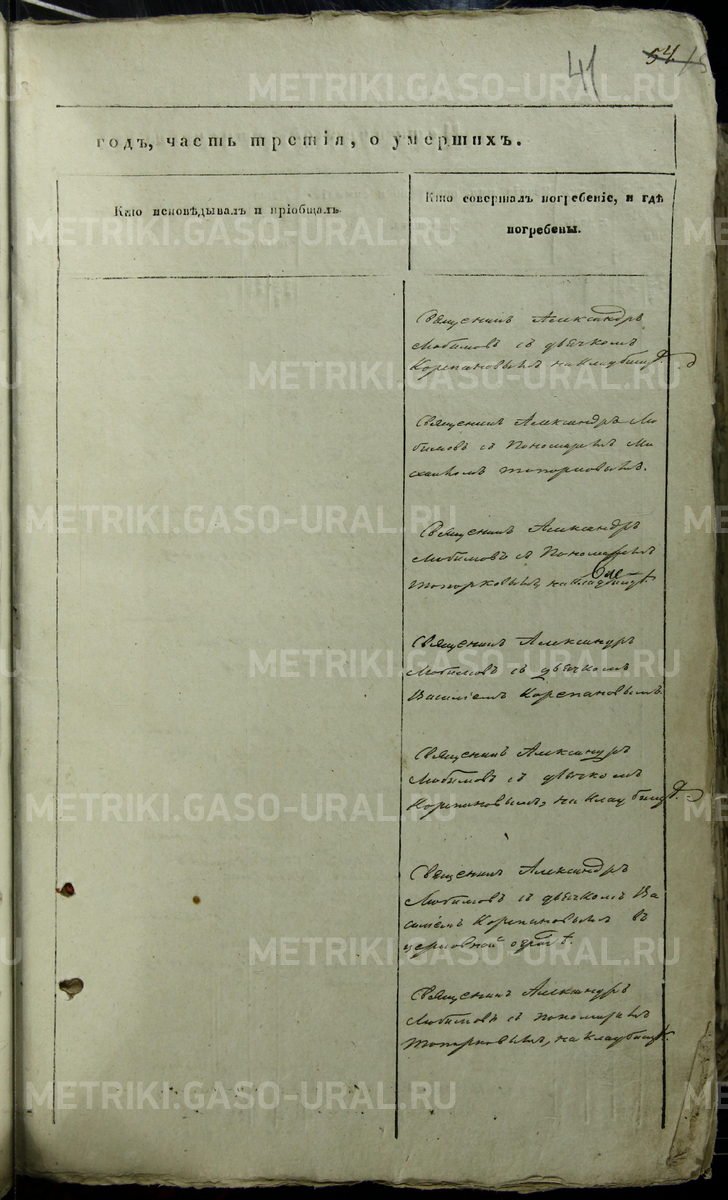 41
54
METRIKI.GASO-URAL.RU
годъ, часть третія, о умершихъ.
Кто исповѣдывалъ и пріобщалъ.
Кто совершалъ погребеніе, и гдѣ
погребены.
Священникъ Александръ
Любимовъ съ дьячкомъ
Корепановымъ на кладбищѣ.
Священникъ Александръ Лю
бимовъ съ Пономаремъ Ми
хаиломъ Топорковымъ.
Священникъ Александръ
Любимовъ съ Пономаремъ
Топорковымъ, на кладбищѣ.
Священникъ Александръ
Любимовъ съ дьячкомъ
Василіемъ Корепановымъ.
Священникъ Александръ
Любимовъ съ дьячкомъ
Корепановымъ, на кладбищѣ.
Священникъ Александръ
Любимовъ съ дьячкомъ Ва
силіемъ Корепановымъ въ
церковной оградѣ.
Священникъ Александръ
Любимовъ съ пономаремъ
Топорковымъ, на кладбищѣ.